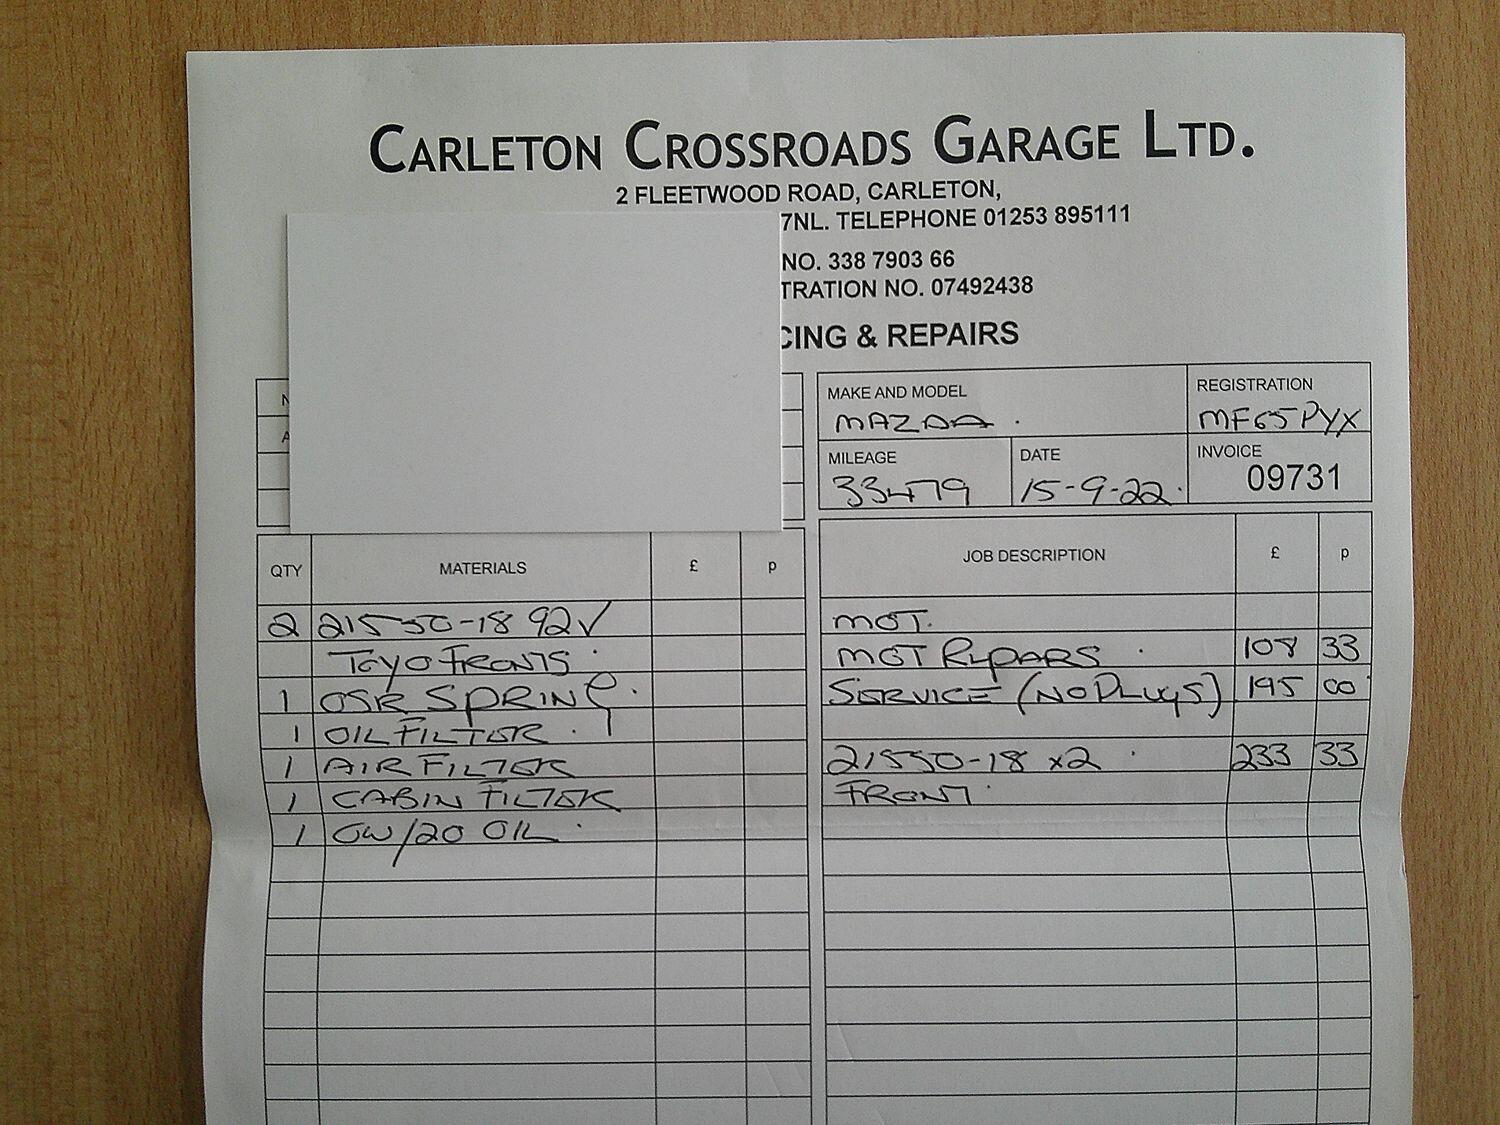 CARLETON CROSSROADS GARAGE LTD.
2 FLEETWOOD ROAD, CARLETON,
7NL. TELEPHONE 01253 895111
NO. 338 7903 66
TRATION NO. 07492438
CING & REPAIRS
MAKE AND MODEL
MAZDA.
REGISTRATION
MF65PYX
MILEAGE
33479
DATE
15-9-22.
INVOICE
09731
QTY MATERIALS £ p
2 21550-18 92V
TOYO FRONTS.
1 OSR SPRING.
1 OIL FILTER.
1 AIR FILTER
1 CABIN FILTER
1 0W/20 OIL.
JOB DESCRIPTION £ p
MOT.
MOT REPARS. 108 33
SERVICE (NO PLUGS) 195 00
21550-18 x2. 233 33
FRONT.